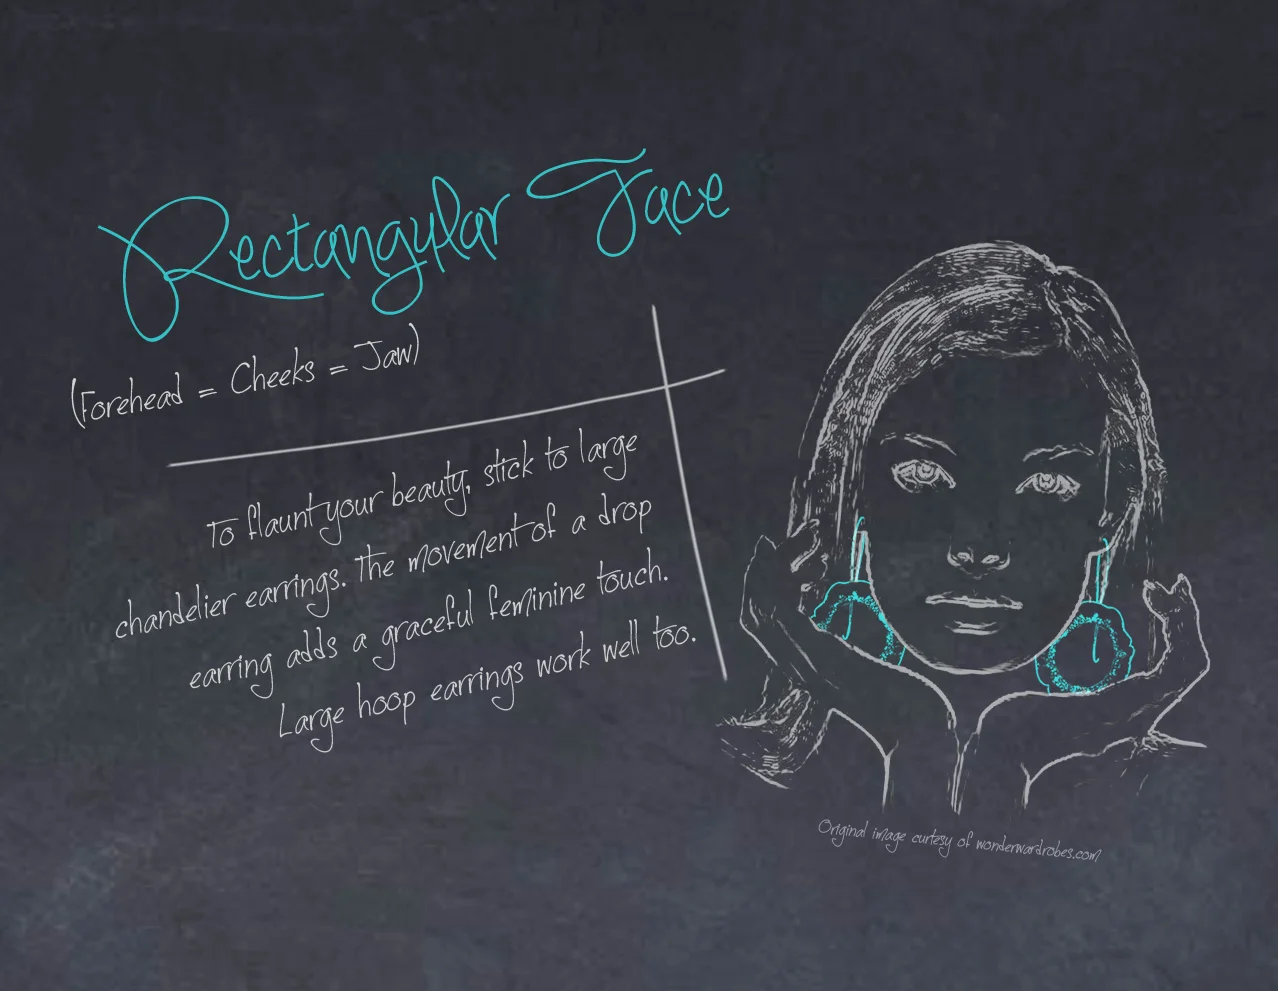 Rectangular Face
(Forehead = Cheeks = Jaw)
To flaunt your beauty, stick to large
chandelier earrings. The movement of a drop
earring adds a graceful feminine touch.
Large hoop earrings work well too.
Original image curtesy of wonderwardrobes.com